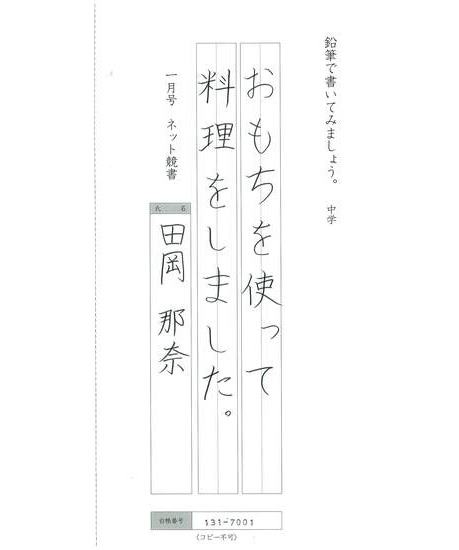 鉛筆で書いてみましょう。 中学
おもちを使って
料理をしました。
一月号 ネット競書
氏 名
田岡 那奈
台帳番号 131-7001
(コピー不可)